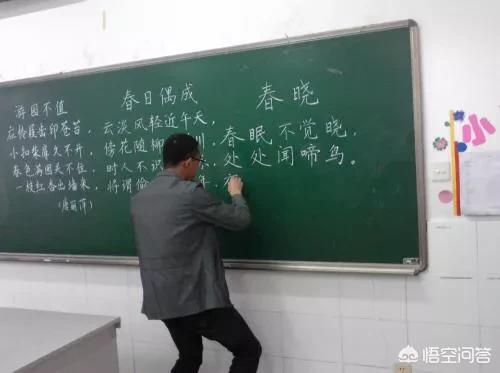 游园不值
应怜屐齿印苍苔，
小扣柴扉久不开，
春色满园关不住，
一枝红杏出墙来。
春日偶成
云淡风轻近午天，
傍花随柳 川
时人不识
将谓偷
春晓
春眠不觉晓，
处处闻啼鸟。
小
悟空问答